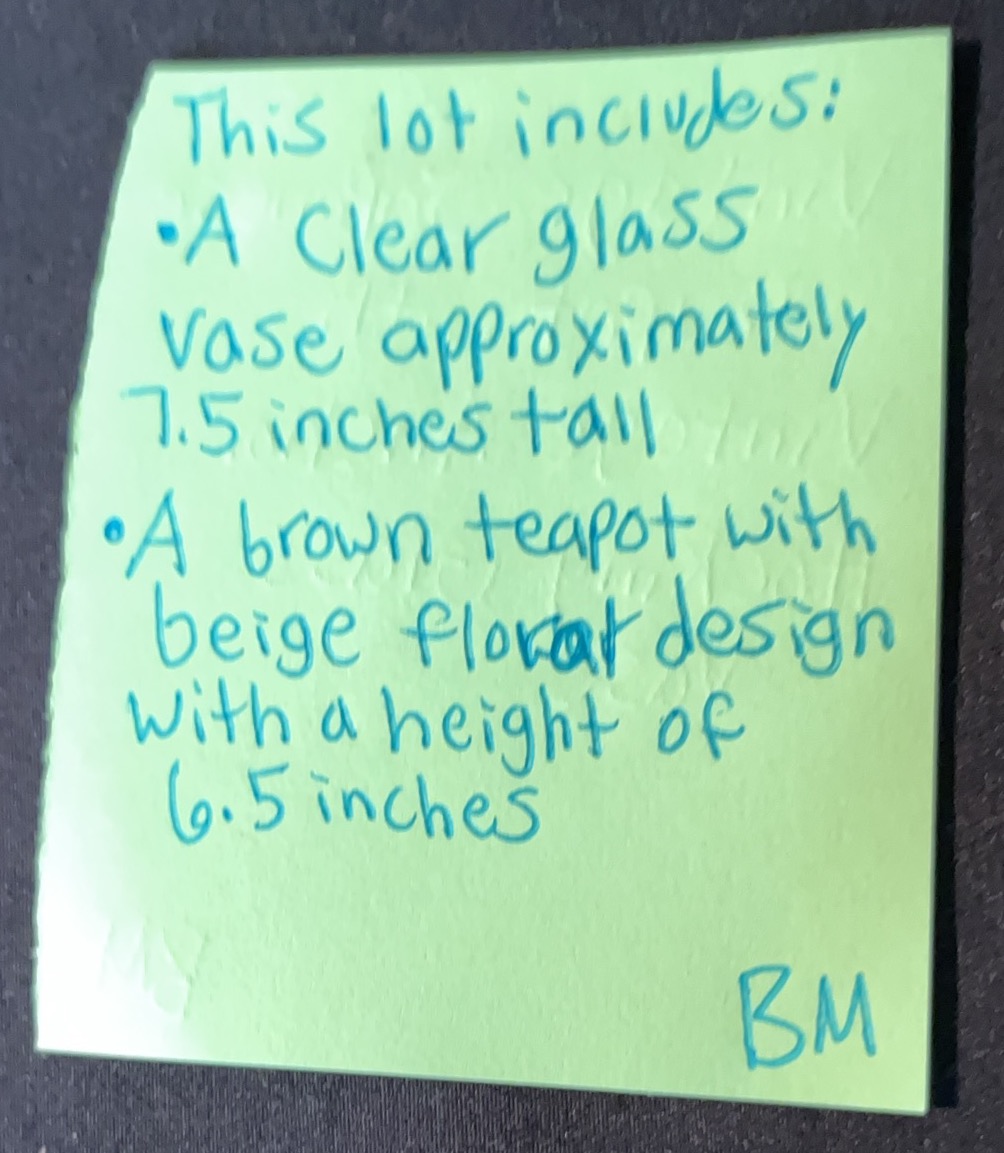 This lot includes:
•A Clear glass
vase approximately
7.5 inches tall
•A brown teapot with
beige floral design
with a height of
6.5 inches
BM